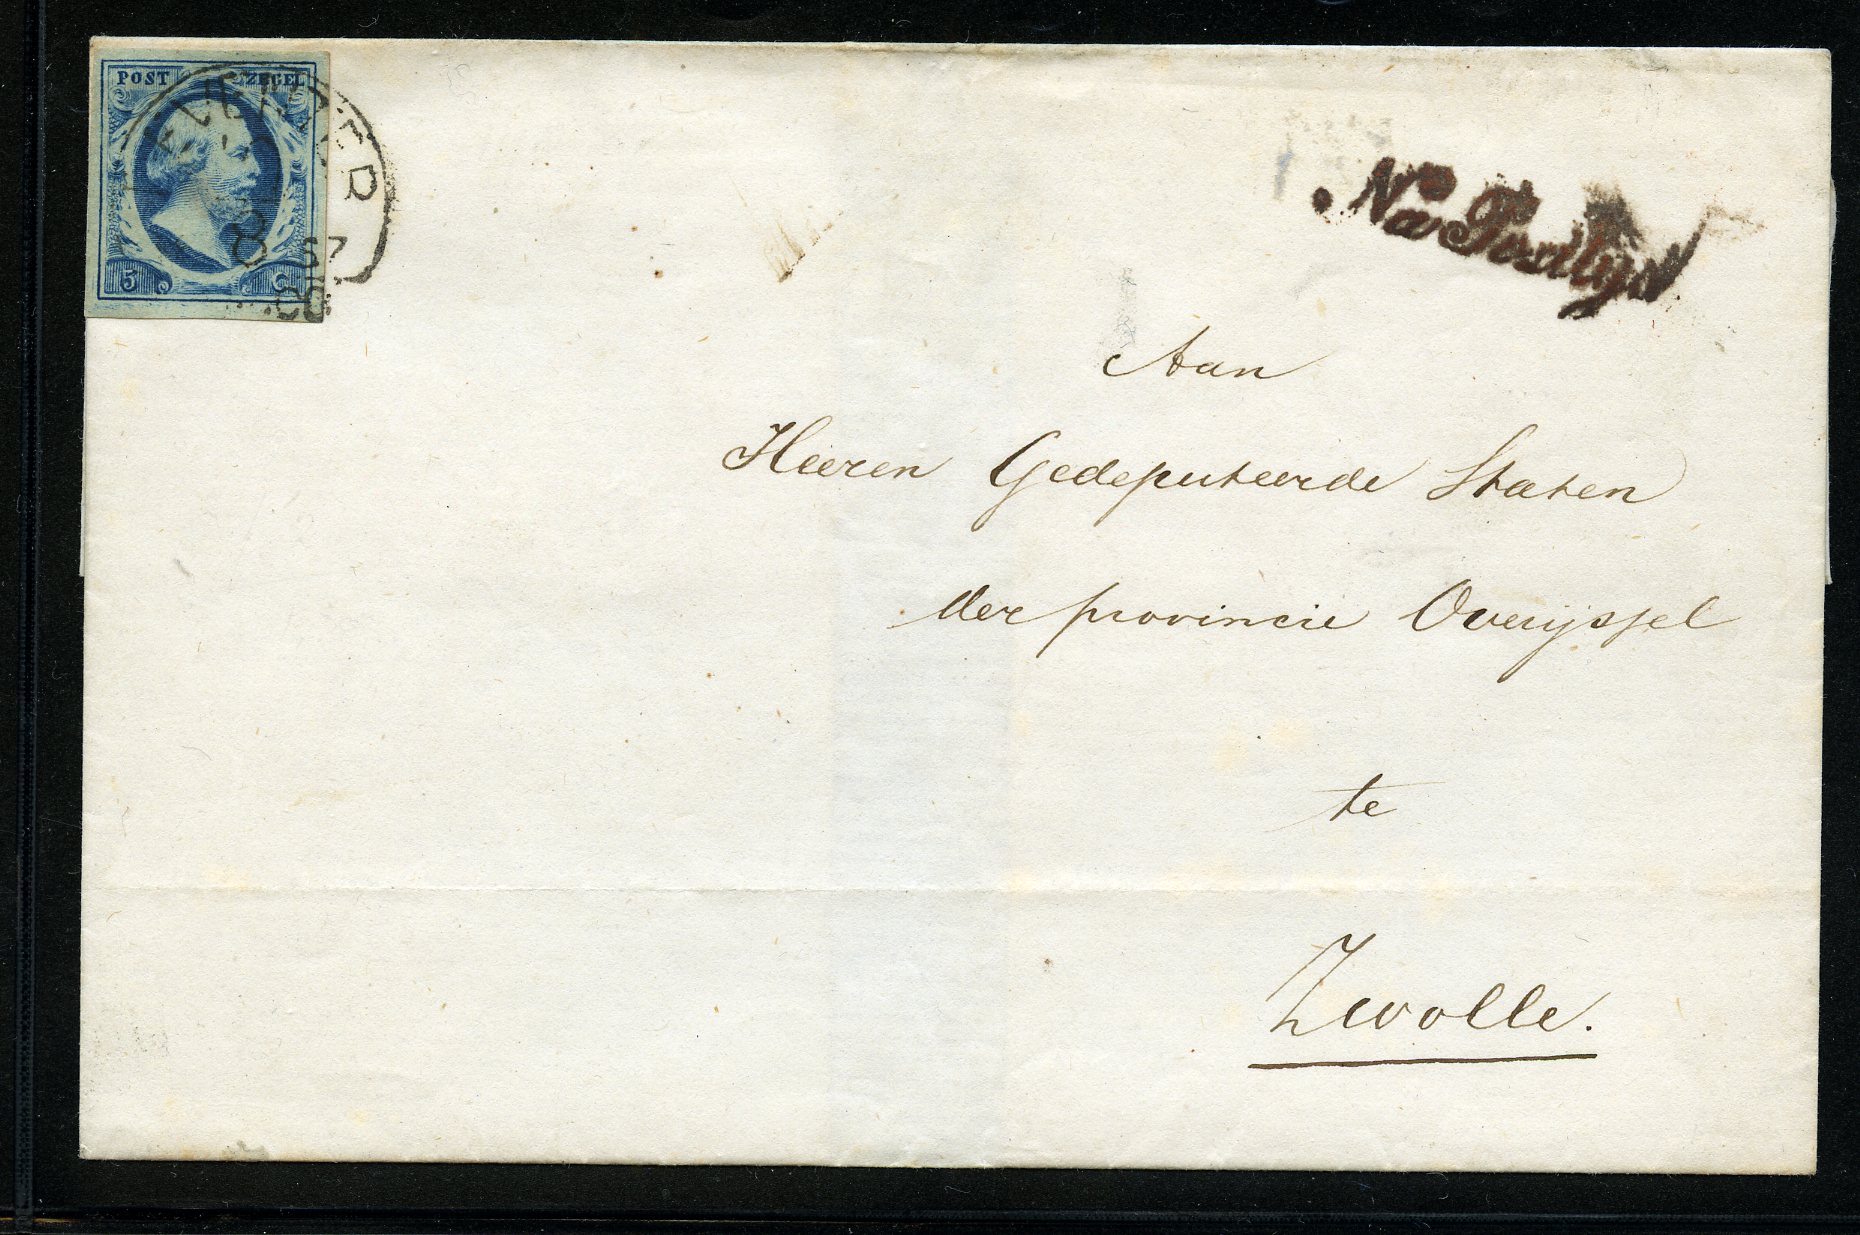 POST ZEGEL
DEVENTER
8
57
5 C
Na Posttijd
Aan
Heeren Gedeputeerde Staten
der provincie Overijssel
te
Zwolle.